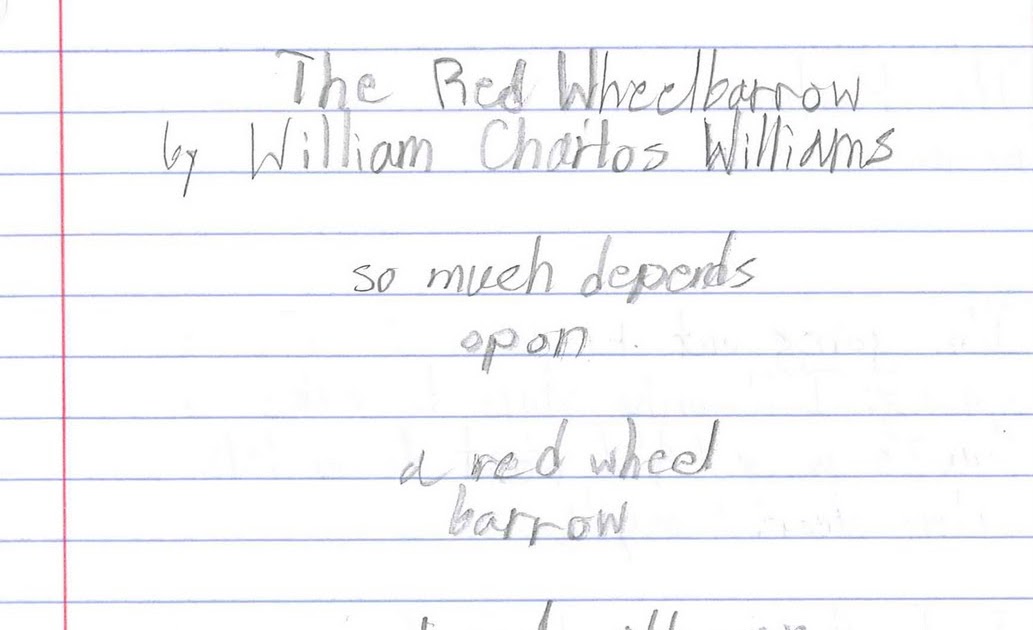 The Red Wheelbarrow
by William Charlos Williams
so much depends
opon
a red wheel
barrow